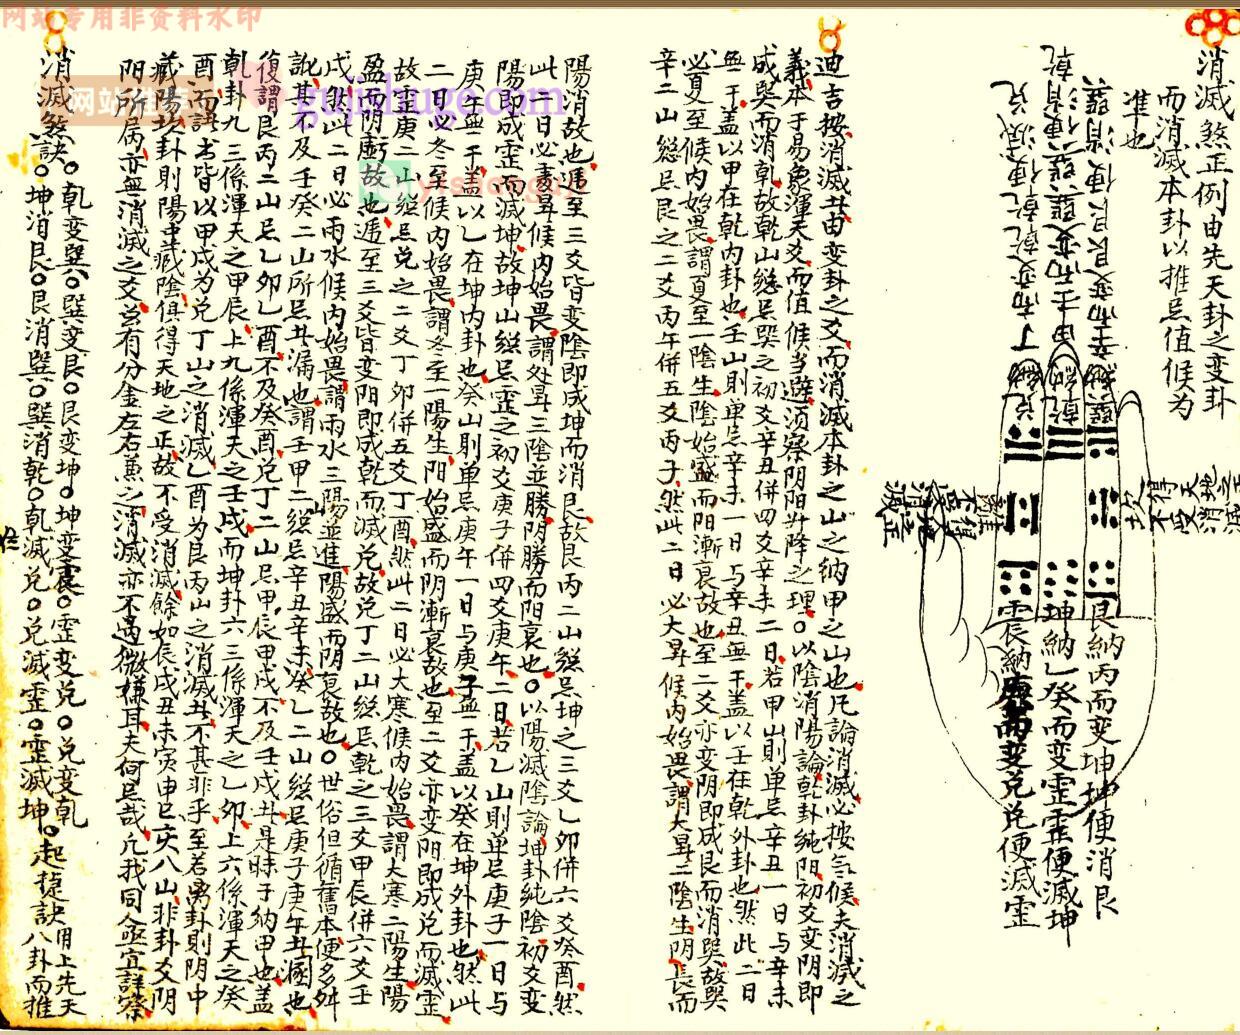 消滅煞正例由先天卦之变卦
而消滅本卦以推忌值候为
準也
艮納丙而变坤坤便消艮
坤納乙癸而变震震便滅坤
震納庚而变兑兑便滅震
迪吉按消滅者由变卦之爻而消滅本卦之山之納甲之山也凡論消滅必按氣候夫消滅之
義本于易象渾天爻而值候当避须察阴阳升降之理○以陰消陽論乾卦纯阳初爻变阴即
成巽而消乾故乾山縂忌巽之初爻辛丑併四爻辛未二日若甲山則单忌辛丑一日与辛未
無干盖以甲在乾内卦也壬山則单忌辛未一日与辛丑無干盖以壬在乾外卦也然此二日
必夏至候内始畏謂夏至一陰生陰始盛而阳漸衰故也至二爻亦变阴即成艮而消巽故巽
辛二山縂忌艮之二爻丙午併五爻丙子然此二日必大暑候内始畏謂大暑二陰生阴長而
陽消故也遞至三爻皆变陰即成坤而消艮故艮丙二山縂忌坤之三爻乙卯併六爻癸酉然
此二日必處暑候内始畏謂處暑三陰並勝阴勝而阳衰也○以陽滅陰論坤卦纯陰初爻变
陽即成震而滅坤故坤山縂忌震之初爻庚子併四爻庚午二日若乙山則单忌庚子一日与
庚午無干盖以乙在坤内卦也癸山則单忌庚午一日与庚子無干盖以癸在坤外卦也然此
二日必冬至候内始畏謂冬至一陽生阳始盛而阴漸衰故也至二爻亦变阳即成兑而滅震
故震庚二山縂忌兑之二爻丁卯併五爻丁酉然此二日必大寒候内始畏謂大寒二陽生陽
盈而阴虧故也遞至三爻皆变阳即成乾而滅兑故兑丁二山縂忌乾之三爻甲辰併六爻壬
戌然此二日必雨水候内始畏謂雨水三陽並進陽盛而阴衰故也○世俗但循舊本便多舛
訛其不及壬癸二山所忌者漏也謂壬甲二山縂忌辛丑辛未癸乙二山縂忌庚子庚午者圂也
復謂艮丙二山忌乙卯乙酉不及癸酉兑丁二山忌甲辰甲戌不及壬戌者是昧于納甲也盖
乾卦九三係渾天之甲辰上九係渾天之壬戌而坤卦六三係渾天之乙卯上六係渾天之癸
酉而訣书皆以甲戌为兑丁山之消滅乙酉为艮丙山之消滅者不甚非乎至若离卦則阴中
藏陽坎卦則陽中藏陰俱得天地之正故不受消滅餘如辰戌丑未寅申巳亥八山非卦爻阴
阳所属亦無消滅之爻岂有分金左右兼之消滅亦不為微嫌耳夫何忌哉凡我同仝亟宜詳察
消滅煞訣○乾变巽○巽变艮○艮变坤○坤变震○震变兑○兑变乾
○坤消艮○艮消巽○巽消乾○乾滅兑○兑滅震○震滅坤○起㨗訣用上先天
八卦而推